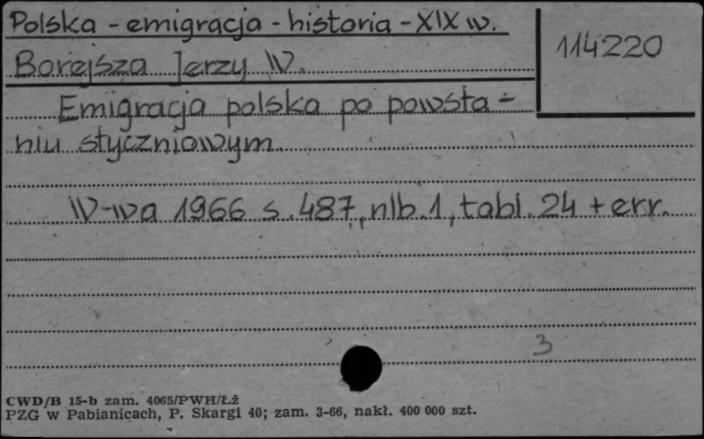 Polska - emigracja - historia - XIX w.
114220
Borejsza Jerzy W.
Emigracja polska po powsta=
niu styczniowym.
W-wa 1966 s. 487, nlb. 1, tabl. 24 + err.
3
CWD/B 15-b zam. 4065/PWH/Łż
PZG w Pabianicach, P. Skargi 40; zam. 3-66, nakł. 400 000 szt.